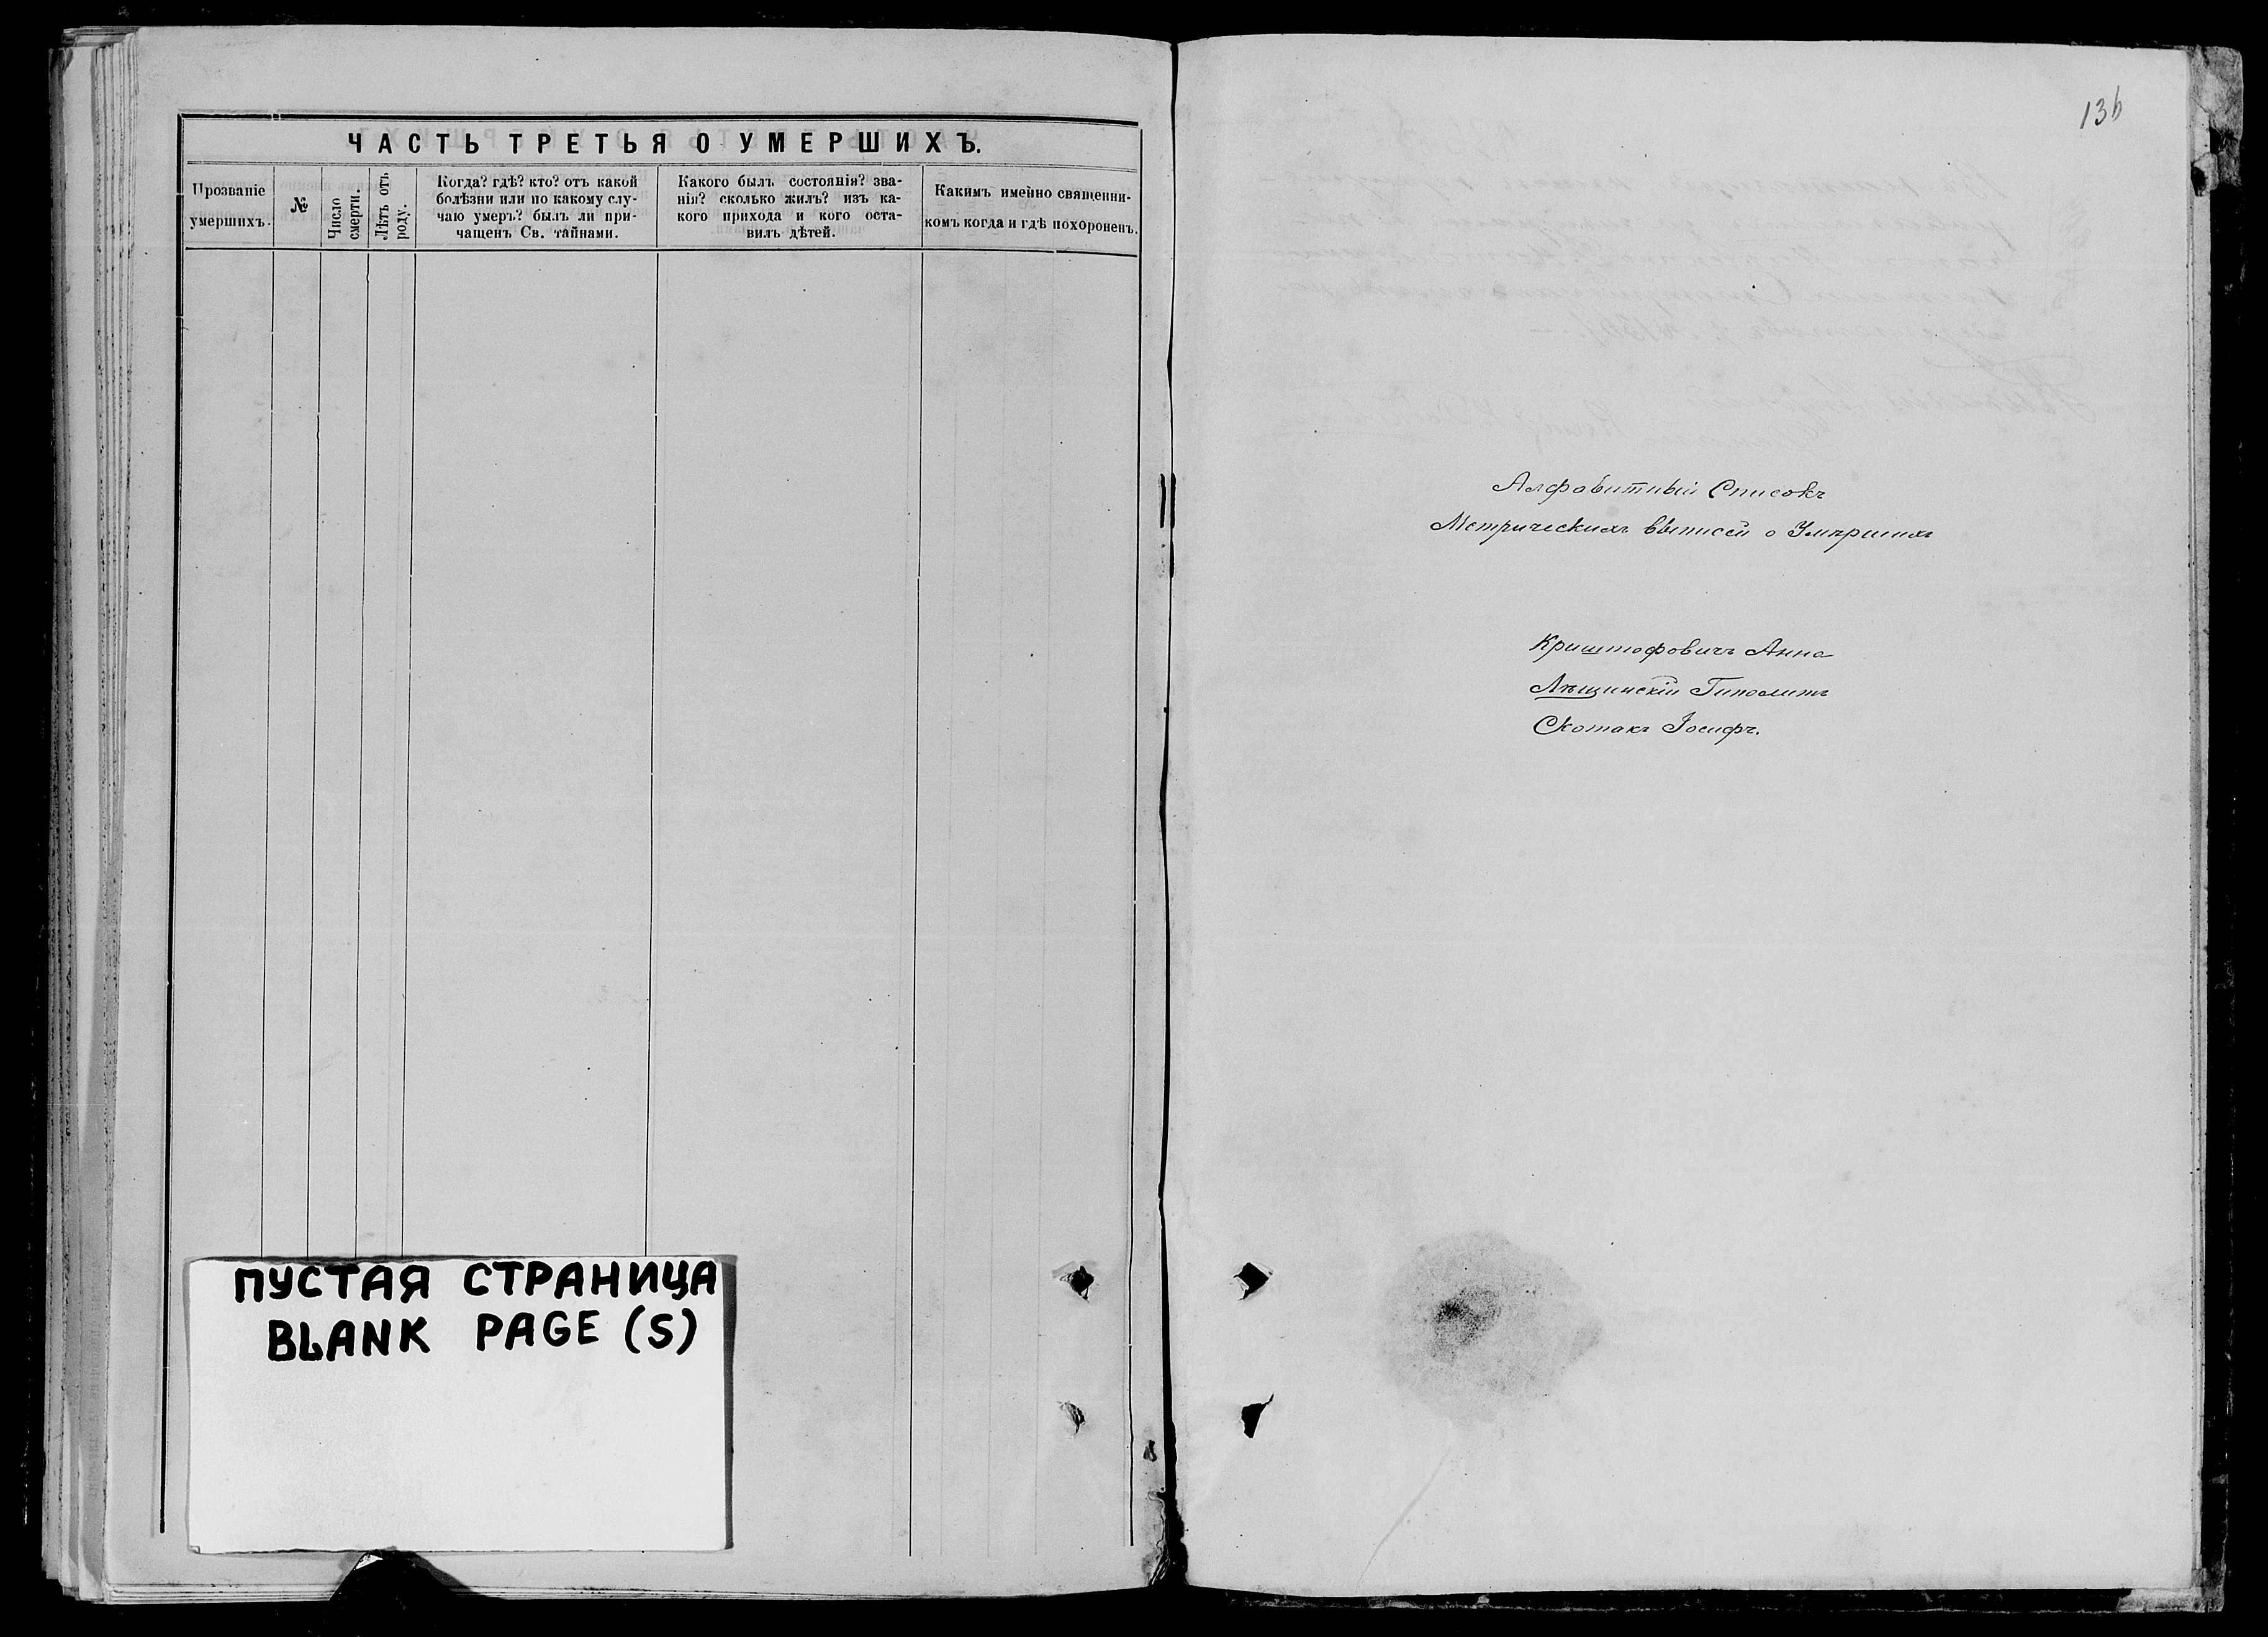 ЧАСТЬ ТРЕТЬЯ О УМЕРШИХЪ.
Прозваніе
умершихъ.
№
Число
смерти.
Лѣтъ отъ
роду.
Когда? гдѣ? кто? отъ какой
болѣзни или по какому слу-
чаю умеръ? былъ ли при-
чащенъ Св. тайнами.
Какого былъ состоянія? зва-
нія? сколько жилъ? изъ ка-
кого прихода и кого оста-
вилъ дѣтей.
Какимъ именно священни-
комъ когда и гдѣ похороненъ.
ПУСТАЯ СТРАНИЦА
BLANK PAGE (S)
136
Алфавитный Списокъ
Метрическихъ выписей о Умершихъ
Криштофовичъ Анна
Лѣщинскій Гиполитъ
Скотакъ Іосифъ.